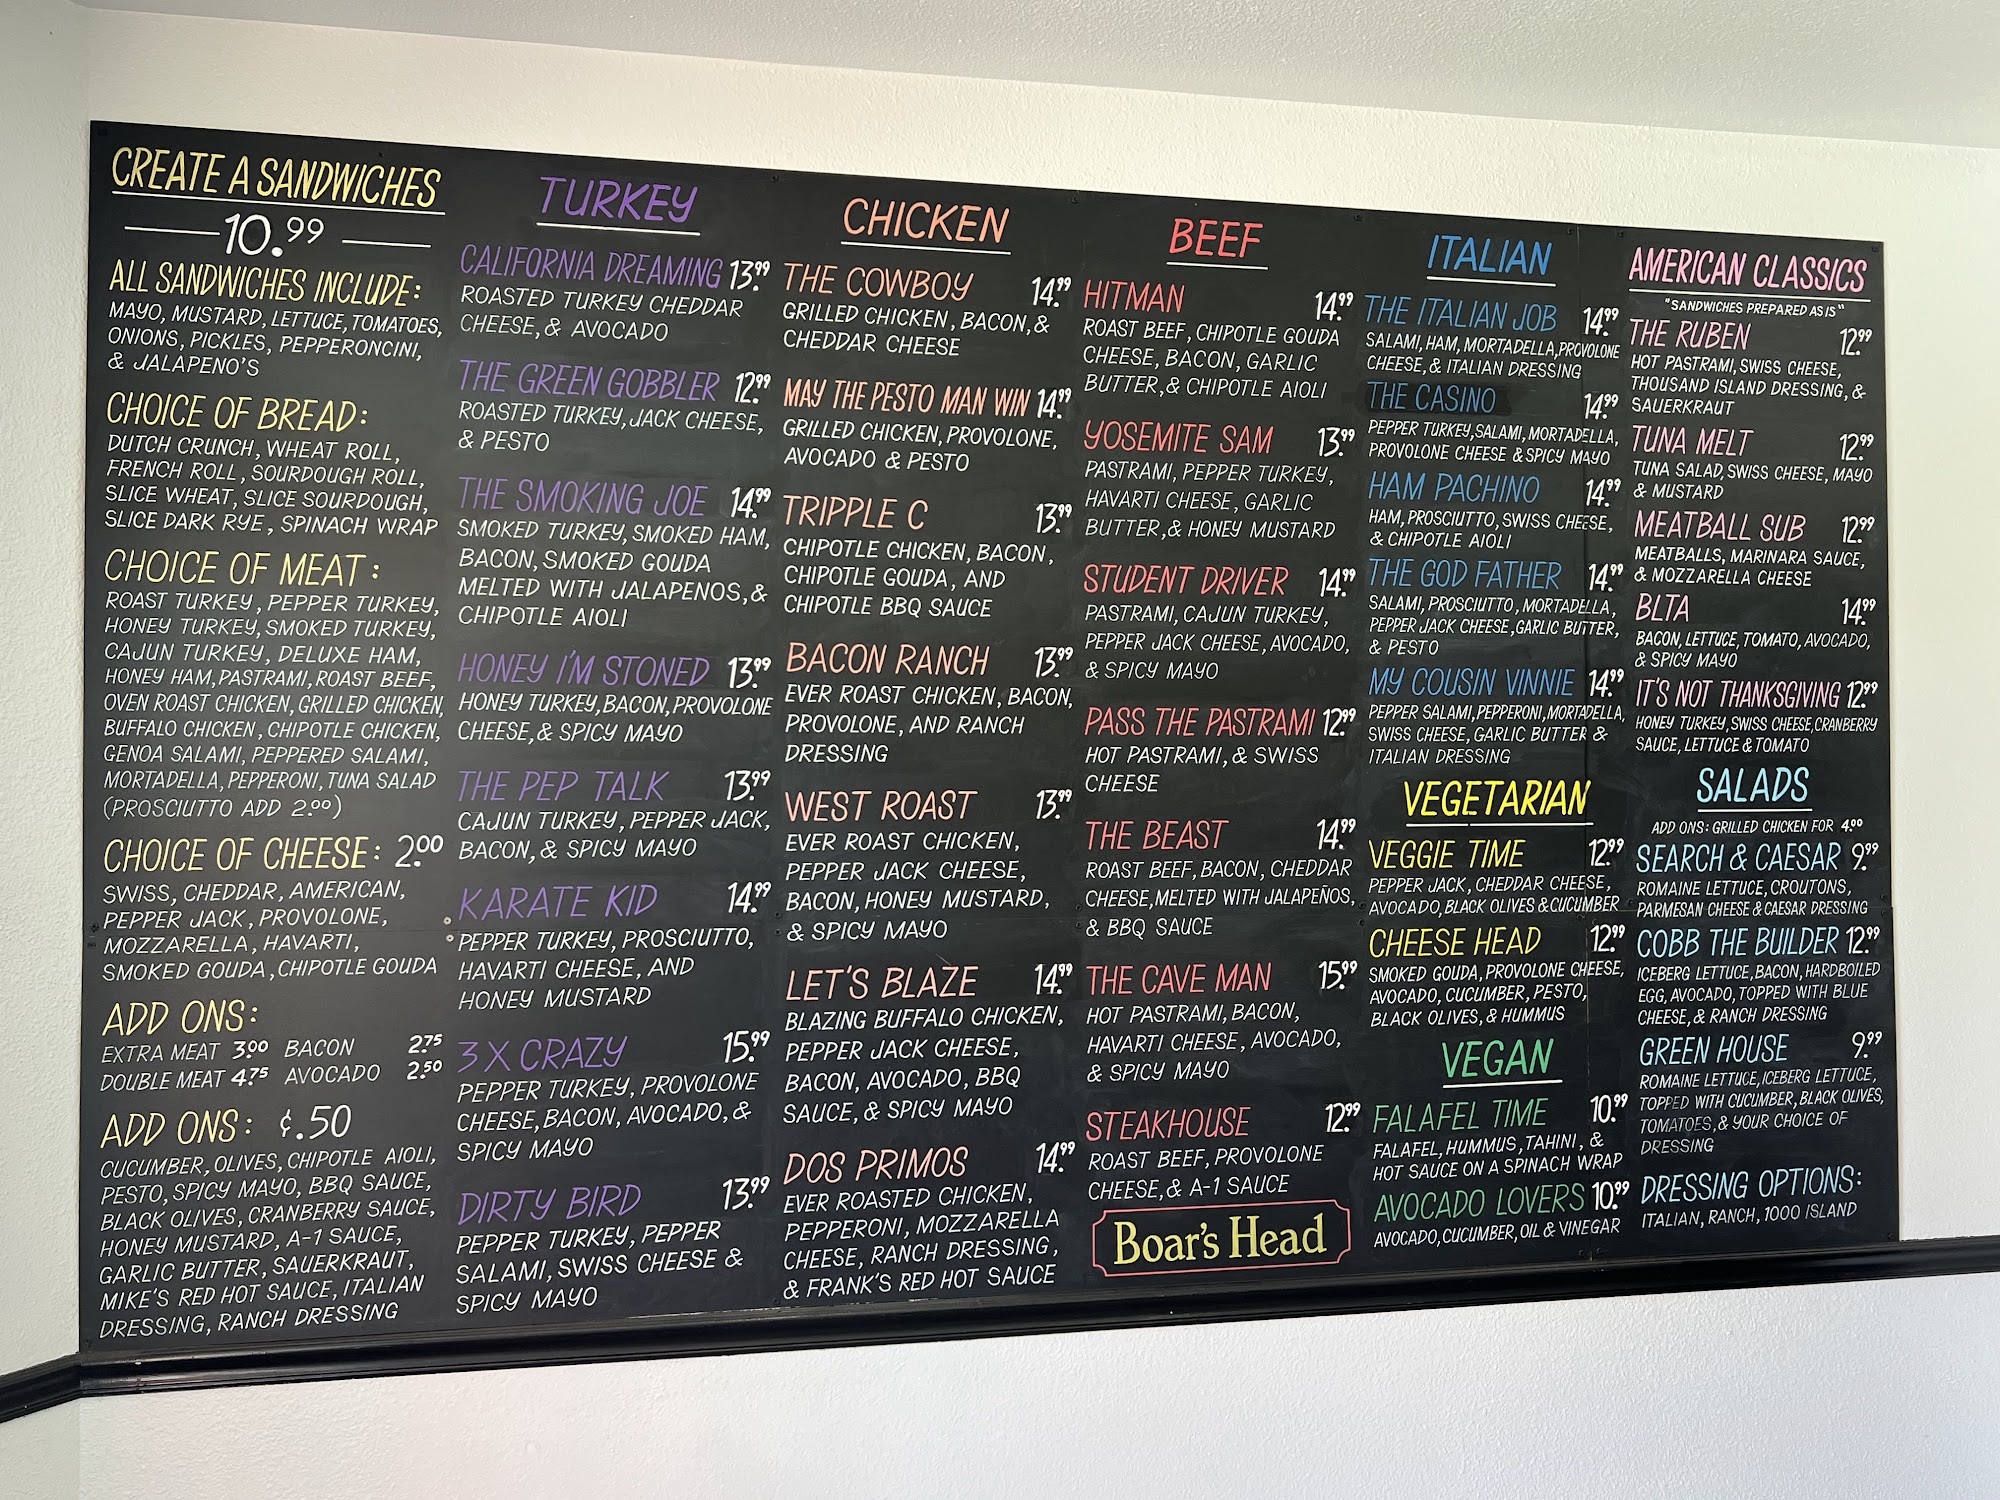 CREATE A SANDWICHES
10.99
ALL SANDWICHES INCLUDE:
MAYO, MUSTARD, LETTUCE, TOMATOES,
ONIONS, PICKLES, PEPPERONCINI,
& JALAPENO'S
CHOICE OF BREAD:
DUTCH CRUNCH, WHEAT ROLL,
FRENCH ROLL, SOURDOUGH ROLL,
SLICE WHEAT, SLICE SOURDOUGH,
SLICE DARK RYE, SPINACH WRAP
CHOICE OF MEAT:
ROAST TURKEY, PEPPER TURKEY,
HONEY TURKEY, SMOKED TURKEY,
CAJUN TURKEY, DELUXE HAM,
HONEY HAM, PASTRAMI, ROAST BEEF,
OVEN ROAST CHICKEN, GRILLED CHICKEN,
BUFFALO CHICKEN, CHIPOTLE CHICKEN,
GENOA SALAMI, PEPPERED SALAMI,
MORTADELLA, PEPPERONI, TUNA SALAD
(PROSCIUTTO ADD 2.00)
CHOICE OF CHEESE: 2.00
SWISS, CHEDDAR, AMERICAN,
PEPPER JACK, PROVOLONE,
MOZZARELLA, HAVARTI,
SMOKED GOUDA, CHIPOTLE GOUDA
ADD ONS:
EXTRA MEAT 3.00 BACON 2.75
DOUBLE MEAT 4.75 AVOCADO 2.50
ADD ONS: ¢.50
CUCUMBER, OLIVES, CHIPOTLE AIOLI,
PESTO, SPICY MAYO, BBQ SAUCE,
BLACK OLIVES, CRANBERRY SAUCE,
HONEY MUSTARD, A-1 SAUCE,
GARLIC BUTTER, SAUERKRAUT,
MIKE'S RED HOT SAUCE, ITALIAN
DRESSING, RANCH DRESSING
TURKEY
CALIFORNIA DREAMING 13.99
ROASTED TURKEY CHEDDAR
CHEESE, & AVOCADO
THE GREEN GOBBLER 12.99
ROASTED TURKEY, JACK CHEESE,
& PESTO
THE SMOKING JOE 14.99
SMOKED TURKEY, SMOKED HAM,
BACON, SMOKED GOUDA
MELTED WITH JALAPENOS, &
CHIPOTLE AIOLI
HONEY I'M STONED 13.99
HONEY TURKEY, BACON, PROVOLONE
CHEESE, & SPICY MAYO
THE PEP TALK 13.99
CAJUN TURKEY, PEPPER JACK,
BACON, & SPICY MAYO
KARATE KID 14.99
PEPPER TURKEY, PROSCIUTTO,
HAVARTI CHEESE, AND
HONEY MUSTARD
3 X CRAZY 15.99
PEPPER TURKEY, PROVOLONE
CHEESE, BACON, AVOCADO, &
SPICY MAYO
DIRTY BIRD 13.99
PEPPER TURKEY, PEPPER
SALAMI, SWISS CHEESE &
SPICY MAYO
CHICKEN
THE COWBOY 14.99
GRILLED CHICKEN, BACON, &
CHEDDAR CHEESE
MAY THE PESTO MAN WIN 14.99
GRILLED CHICKEN, PROVOLONE,
AVOCADO & PESTO
TRIPPLE C 13.99
CHIPOTLE CHICKEN, BACON,
CHIPOTLE GOUDA, AND
CHIPOTLE BBQ SAUCE
BACON RANCH 13.99
EVER ROAST CHICKEN, BACON,
PROVOLONE, AND RANCH
DRESSING
WEST ROAST 13.99
EVER ROAST CHICKEN,
PEPPER JACK CHEESE,
BACON, HONEY MUSTARD,
& SPICY MAYO
LET'S BLAZE 14.99
BLAZING BUFFALO CHICKEN,
PEPPER JACK CHEESE,
BACON, AVOCADO, BBQ
SAUCE, & SPICY MAYO
DOS PRIMOS 14.99
EVER ROASTED CHICKEN,
PEPPERONI, MOZZARELLA
CHEESE, RANCH DRESSING,
& FRANK'S RED HOT SAUCE
BEEF
HITMAN 14.99
ROAST BEEF, CHIPOTLE GOUDA
CHEESE, BACON, GARLIC
BUTTER, & CHIPOTLE AIOLI
YOSEMITE SAM 13.99
PASTRAMI, PEPPER TURKEY,
HAVARTI CHEESE, GARLIC
BUTTER, & HONEY MUSTARD
STUDENT DRIVER 14.99
PASTRAMI, CAJUN TURKEY,
PEPPER JACK CHEESE, AVOCADO,
& SPICY MAYO
PASS THE PASTRAMI 12.99
HOT PASTRAMI, & SWISS
CHEESE
THE BEAST 14.99
ROAST BEEF, BACON, CHEDDAR
CHEESE, MELTED WITH JALAPEÑOS,
& BBQ SAUCE
THE CAVE MAN 15.99
HOT PASTRAMI, BACON,
HAVARTI CHEESE, AVOCADO,
& SPICY MAYO
STEAKHOUSE 12.99
ROAST BEEF, PROVOLONE
CHEESE, & A-1 SAUCE
Boar's Head
ITALIAN
THE ITALIAN JOB 14.99
SALAMI, HAM, MORTADELLA, PROVOLONE
CHEESE, & ITALIAN DRESSING
THE CASINO 14.99
PEPPER TURKEY, SALAMI, MORTADELLA,
PROVOLONE CHEESE & SPICY MAYO
HAM PACHINO 14.99
HAM, PROSCIUTTO, SWISS CHEESE,
& CHIPOTLE AIOLI
THE GOD FATHER 14.99
SALAMI, PROSCIUTTO, MORTADELLA,
PEPPER JACK CHEESE, GARLIC BUTTER,
& PESTO
MY COUSIN VINNIE 14.99
PEPPER SALAMI, PEPPERONI, MORTADELLA,
SWISS CHEESE, GARLIC BUTTER &
ITALIAN DRESSING
VEGETARIAN
VEGGIE TIME 12.99
PEPPER JACK, CHEDDAR CHEESE,
AVOCADO, BLACK OLIVES & CUCUMBER
CHEESE HEAD 12.99
SMOKED GOUDA, PROVOLONE CHEESE,
AVOCADO, CUCUMBER, PESTO,
BLACK OLIVES, & HUMMUS
VEGAN
FALAFEL TIME 10.99
FALAFEL, HUMMUS, TAHINI, &
HOT SAUCE ON A SPINACH WRAP
AVOCADO LOVERS 10.99
AVOCADO, CUCUMBER, OIL & VINEGAR
AMERICAN CLASSICS
"SANDWICHES PREPARED AS IS"
THE RUBEN 12.99
HOT PASTRAMI, SWISS CHEESE,
THOUSAND ISLAND DRESSING, &
SAUERKRAUT
TUNA MELT 12.99
TUNA SALAD, SWISS CHEESE, MAYO
& MUSTARD
MEATBALL SUB 12.99
MEATBALLS, MARINARA SAUCE,
& MOZZARELLA CHEESE
BLTA 14.99
BACON, LETTUCE, TOMATO, AVOCADO,
& SPICY MAYO
IT'S NOT THANKSGIVING 12.99
HONEY TURKEY, SWISS CHEESE, CRANBERRY
SAUCE, LETTUCE & TOMATO
SALADS
ADD ONS: GRILLED CHICKEN FOR 4.00
SEARCH & CAESAR 9.99
ROMAINE LETTUCE, CROUTONS,
PARMESAN CHEESE & CAESAR DRESSING
COBB THE BUILDER 12.99
ICEBERG LETTUCE, BACON, HARDBOILED
EGG, AVOCADO, TOPPED WITH BLUE
CHEESE, & RANCH DRESSING
GREEN HOUSE 9.99
ROMAINE LETTUCE, ICEBERG LETTUCE,
TOPPED WITH CUCUMBER, BLACK OLIVES,
TOMATOES, & YOUR CHOICE OF
DRESSING
DRESSING OPTIONS:
ITALIAN, RANCH, 1000 ISLAND